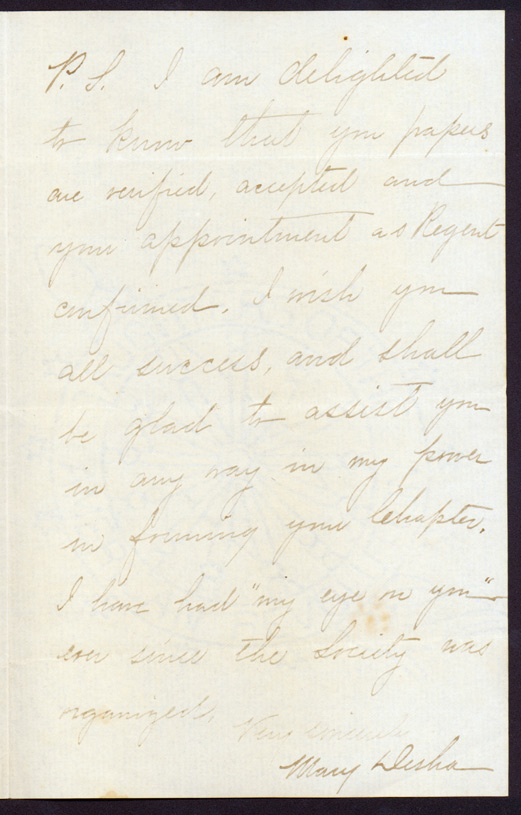 P. S. I am delighted
to know that your papers
are verified, accepted and
your appointment as Regent
confirmed. I wish you
all success, and shall
be glad to assist you
in any way in my power
in forming your Chapter.
I have had "my eye on you"
ever since the Society was
organized.
Very sincerely
Mary Desha